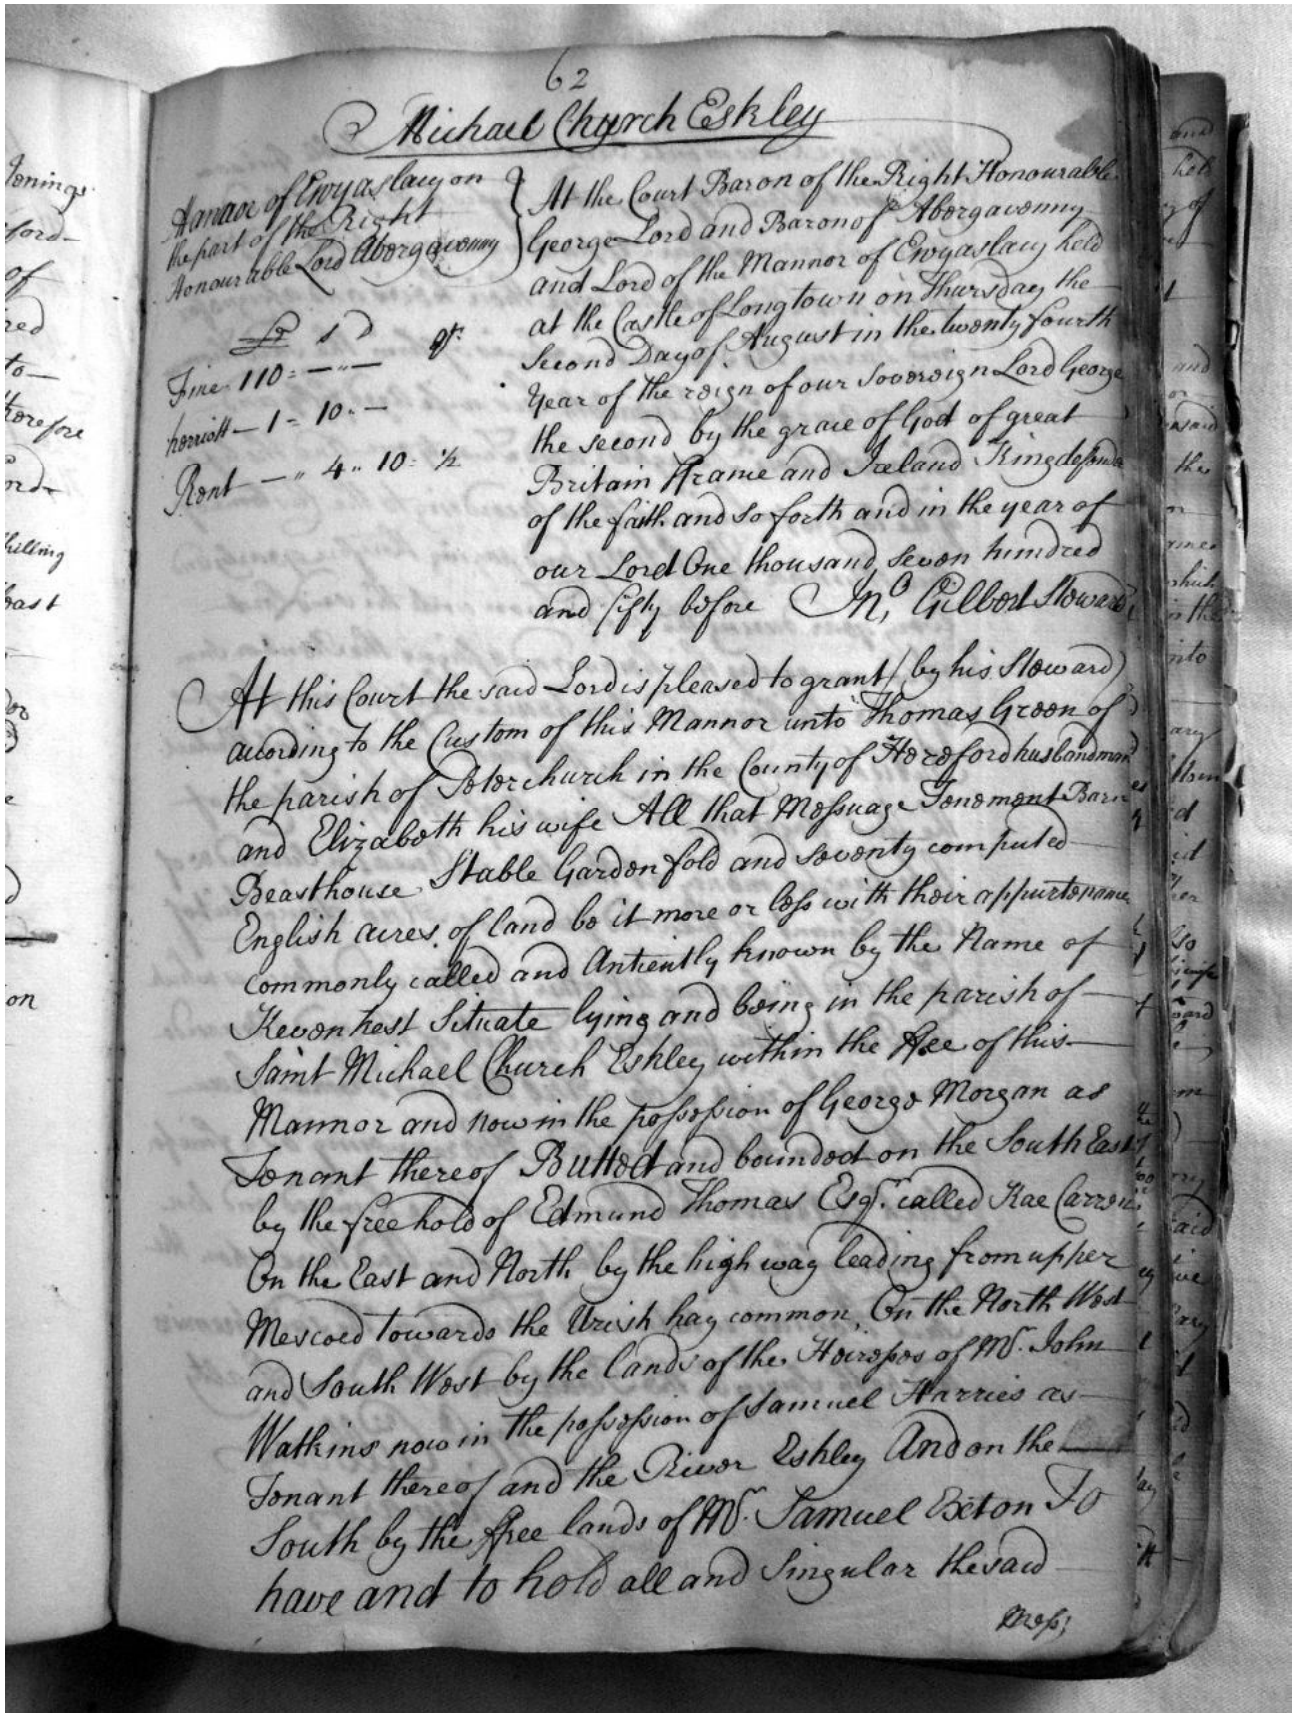 62
Michael Church Eskley
Mannor of Ewyaslacy on
the part of the Right
Honourable Lord Abergavenny
£ s d qr.
Fine 110 = — " —
herriott — 1 = 10 " —
Rent — " 4 " 10 = ½
At the Court Baron of the Right Honourable
George Lord and Baron of Abergavenny
and Lord of the Mannor of Ewyaslacy held
at the Castle of Longtown on Thursday the
Second Day of August in the twenty fourth
Year of the reign of our Sovereign Lord George
the second by the grace of God of great
Britain France and Ireland King defender
of the faith and so forth and in the year of
our Lord One thousand seven hundred
and fifty before Jno. Gilbert Steward
At this Court the said Lord is pleased to grant (by his Steward)
according to the Custom of this Mannor unto Thomas Green of
the parish of Peterchurch in the County of Hereford husbandman
and Elizabeth his wife All that Messuage Tenement Barn
Beasthouse Stable Garden fold and seventy computed
English acres of land be it more or less with their appurtenances
commonly called and Antiently known by the Name of
Kevenhest Situate lying and being in the parish of
Saint Michael Church Eskley within the ffee of this
Mannor and now in the possession of George Morgan as
Tenant thereof Butted and bounded on the South East
by the freehold of Edmund Thomas Esqr. called Kae Carren
On the East and North by the high way leading from upper
Mescoed towards the Urish hay common, On the North West
and South West by the lands of the Heiresses of Mr. John
Watkins now in the possession of Samuel Harries as
Tenant thereof and the River Eskley And on the
South by the ffree lands of Mr. Samuel Exton To
have and to hold all and Singular the said
Mess;